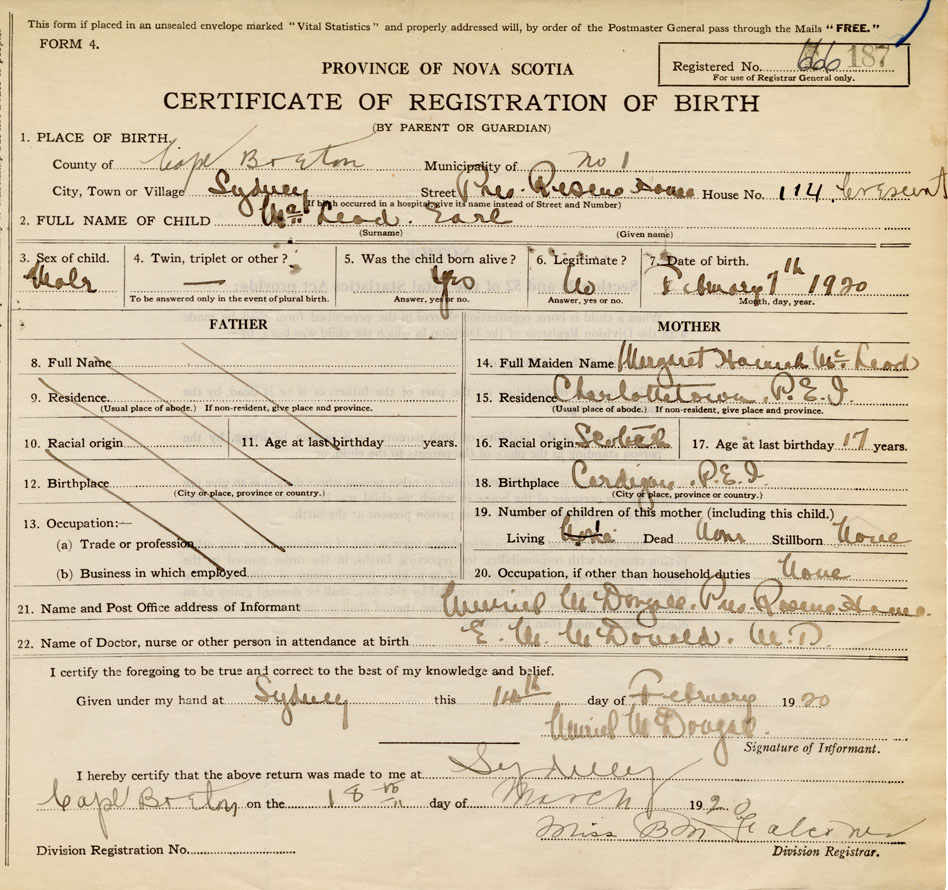 This form if placed in an unsealed envelope marked "Vital Statistics" and properly addressed will, by order of the Postmaster General pass through the Mails "FREE."
FORM 4.
Registered No. 666 187
For use of Registrar General only.
PROVINCE OF NOVA SCOTIA
CERTIFICATE OF REGISTRATION OF BIRTH
(BY PARENT OR GUARDIAN)
1. PLACE OF BIRTH.
County of Cape Breton Municipality of No 1
City, Town or Village Sydney Street Pres. Rescue Home House No. 114 Crescent
(If birth occurred in a hospital give its name instead of Street and Number)
2. FULL NAME OF CHILD Mc Leod. Earl
(Surname) (Given name)
3. Sex of child. 4. Twin, triplet or other? 5. Was the child born alive? 6. Legitimate? 7. Date of birth.
Male — Yes No February 7th 1920
To be answered only in the event of plural birth. Answer, yes or no. Answer, yes or no. Month, day, year.
FATHER MOTHER
8. Full Name
14. Full Maiden Name Margaret Hannah Mc Leod
9. Residence
(Usual place of abode.) If non-resident, give place and province.
15. Residence Charlottetown. P.E.I.
(Usual place of abode.) If non-resident, give place and province.
10. Racial origin 11. Age at last birthday years.
16. Racial origin Scotch 17. Age at last birthday 17 years.
12. Birthplace
(City or place, province or country.)
18. Birthplace Cardigan. P.E.I.
(City or place, province or country.)
13. Occupation:—
19. Number of children of this mother (including this child.)
(a) Trade or profession
Living 1 Dead None Stillborn None
(b) Business in which employed
20. Occupation, if other than household duties None
21. Name and Post Office address of Informant Muriel McDougall. Pres. Rescue Home.
22. Name of Doctor, nurse or other person in attendance at birth E. M. McDonald. M.D.
I certify the foregoing to be true and correct to the best of my knowledge and belief.
Given under my hand at Sydney this 14th day of February 1920
Muriel McDougall
Signature of Informant.
I hereby certify that the above return was made to me at Sydney
Cape Breton on the 18th day of March 1920
Miss B M Falconer
Division Registration No. Division Registrar.